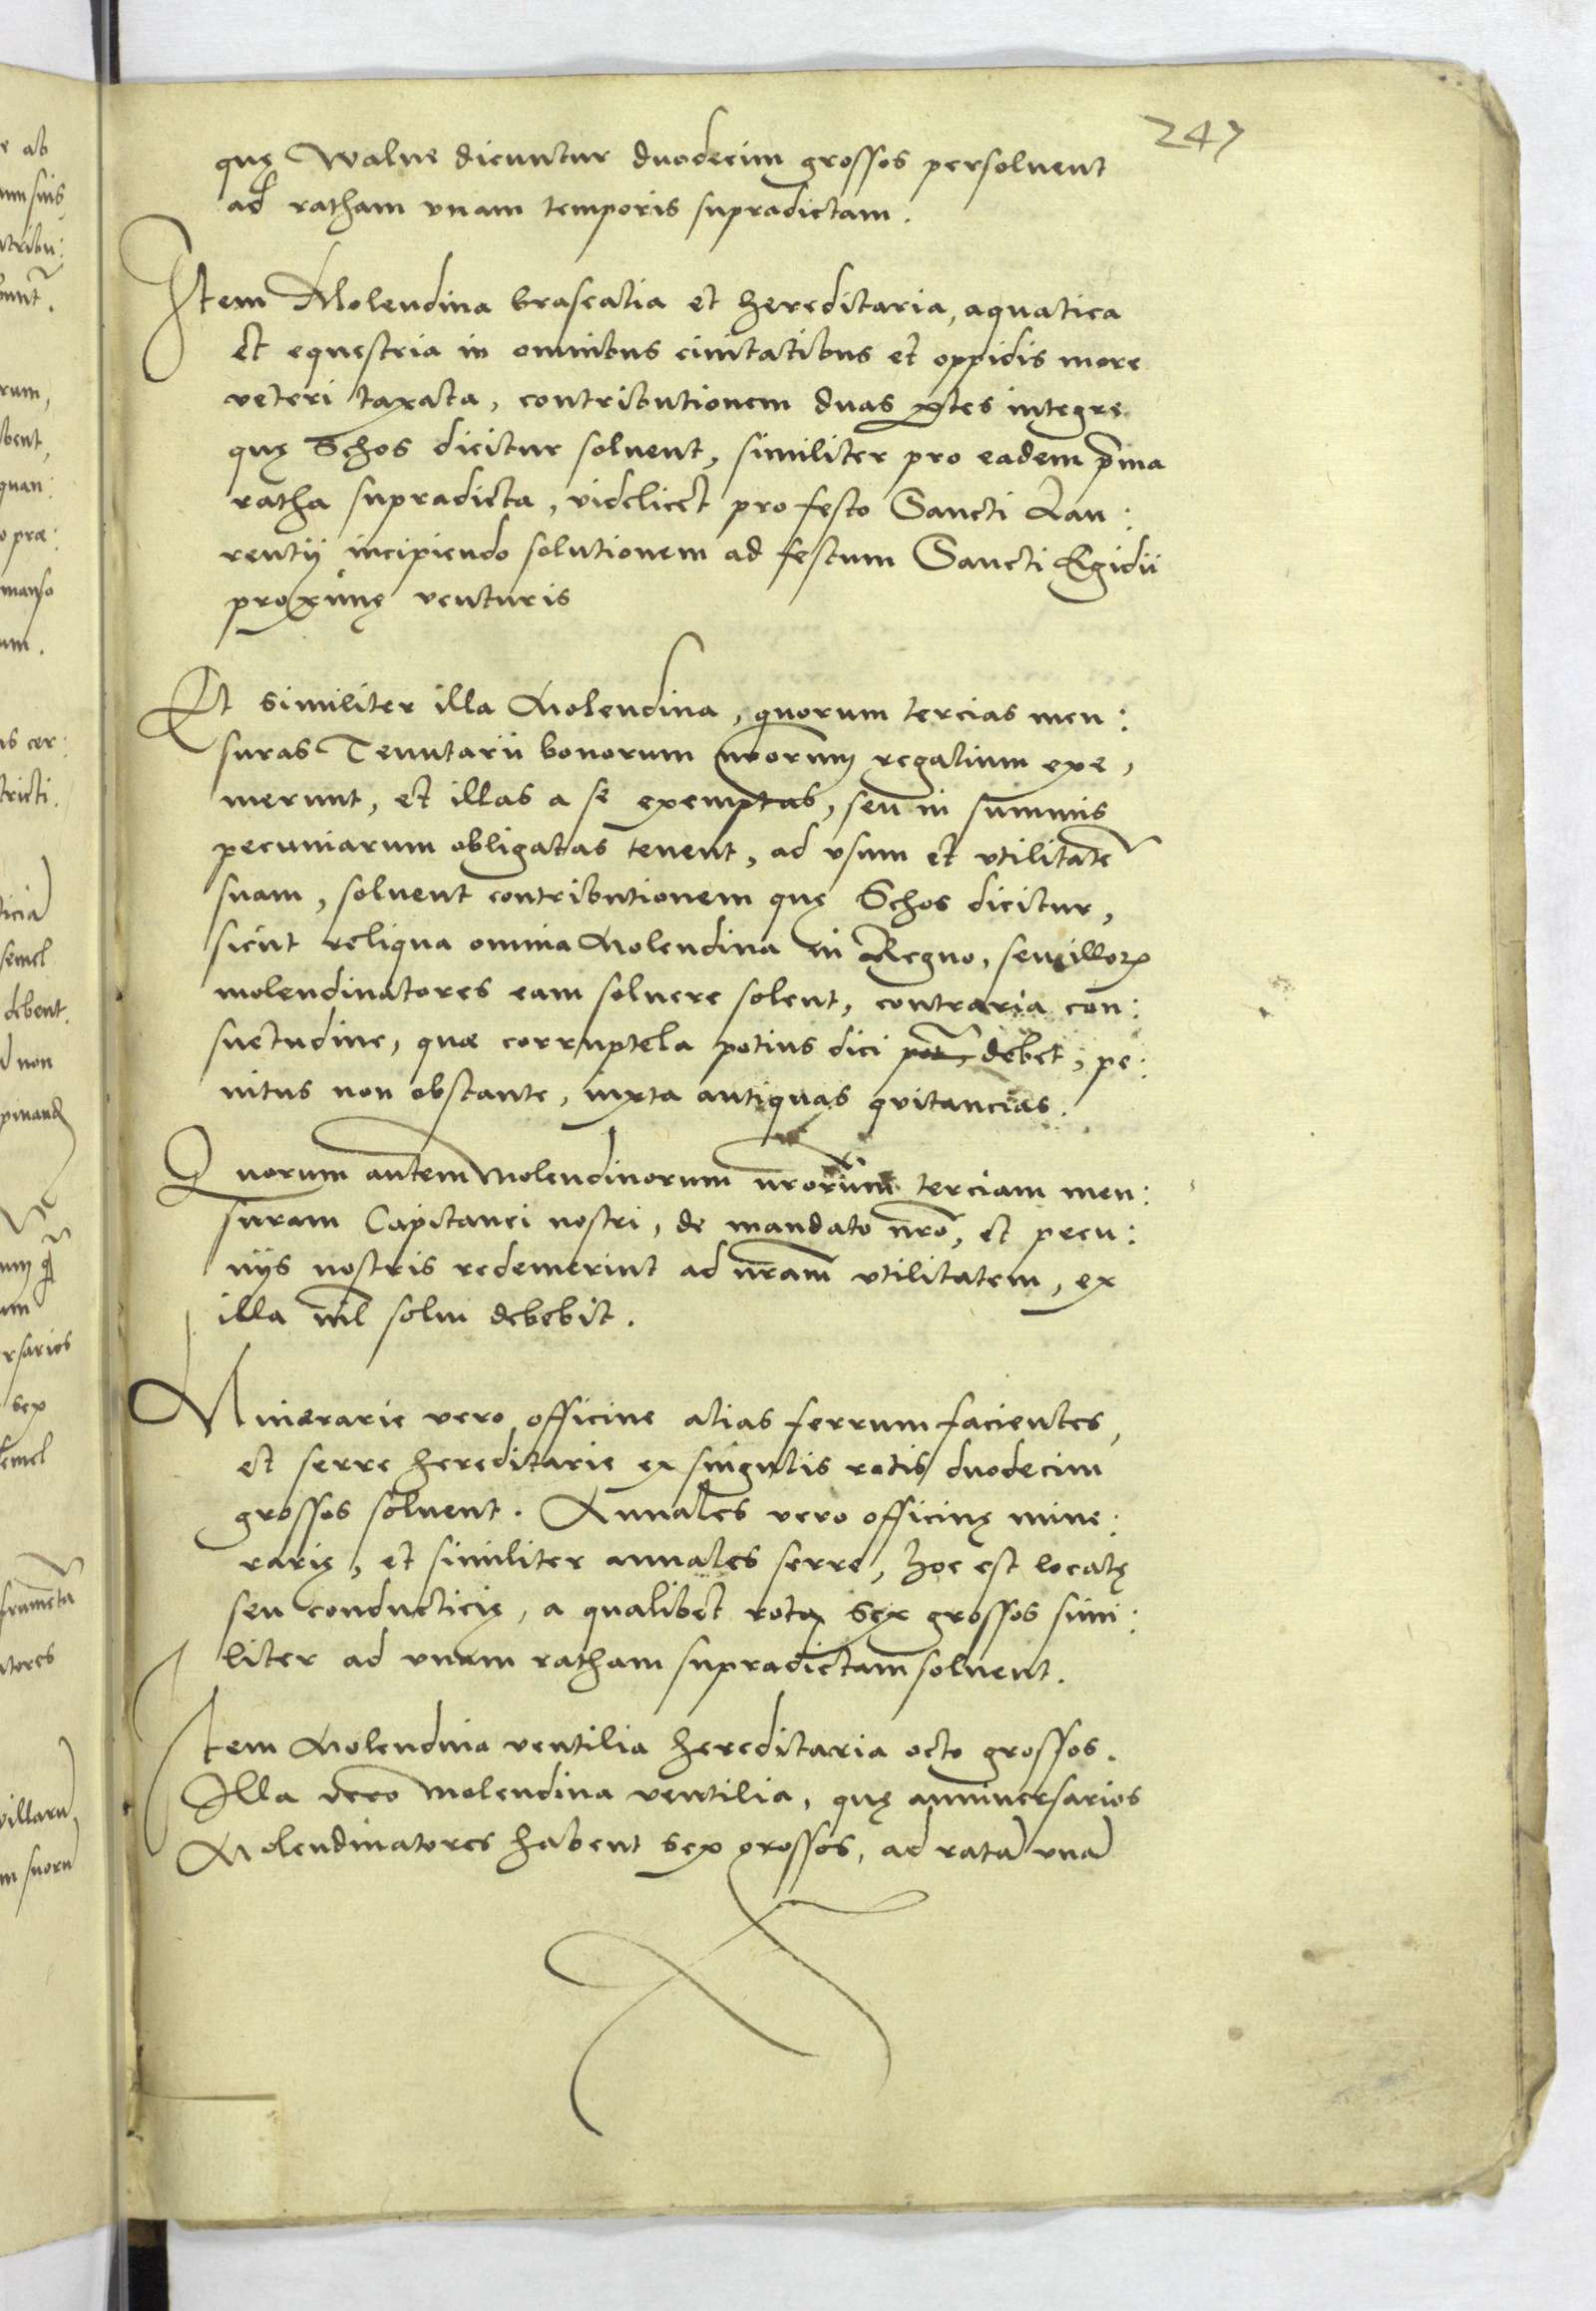 247
quę walne dicuntur duodecim grossos persolvent
ad ratham unam temporis supradictam.
Item Molendina braseatia et hereditaria, aquatica
et equestria in omnibus civitatibus et oppidis more
veteri taxata, contributionem duas ꝑtes integre
quę Schos dicitur solvent, similiter pro eadem p̄ma
ratha supradicta, videlicet pro festo Sancti Lau:
rentij incipiendo solutionem ad festum Sancti Egidii
proximę venturis
Et similiter illa Molendina, quorum tercias men:
suras Tenutarii bonorum nr̄orum regalium exe,
merunt, et illas a se exemptas, seu in summis
pecuniarum obligatas tenent, ad usum et utilitatē
suam, solvent contributionem quę Schos dicitur,
sicut reliqua omnia Molendina in Regno, seu illorꝝ
molendinatores eam solvere solent, contraria con:
suetudine, quæ corruptela potius dici debet, pe:
nitus non obstante, iuxta antiquas quitancias.
Quorum autem Molendinorum nr̄orum terciam men:
suram Capitanei nostri, de mandato nr̄o, et pecu:
niis nostris redemerint ad nr̄am utilitatem, ex
illa nil solvi debebit.
Minerarie vero officine alias ferrum facientes,
et serre hereditarie ex singulis rotis duodecim
grossos solvent. Annales vero officinę mine:
rarię, et similiter annales serre, hoc est locatę
seu conducticię, a qualibet rota sex grossos simi:
liter ad unam ratham supradictam solvent.
Item Molendina ventilia hereditaria octo grossos.
Illa vero Molendina ventilia, quę anniversarios
Molendinatores habent sex grossos, ad ratā unā